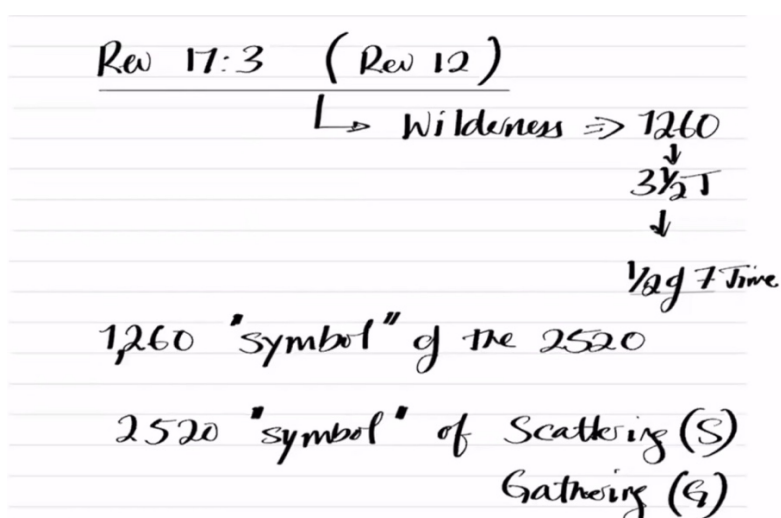 Rev 17:3 (Rev 12)
↳ Wilderness ⇒ 1260
↓
3½ T
↓
1/2 of 7 Time
1,260 "symbol" of the 2520
2520 "symbol" of Scattering (S)
Gathering (G)